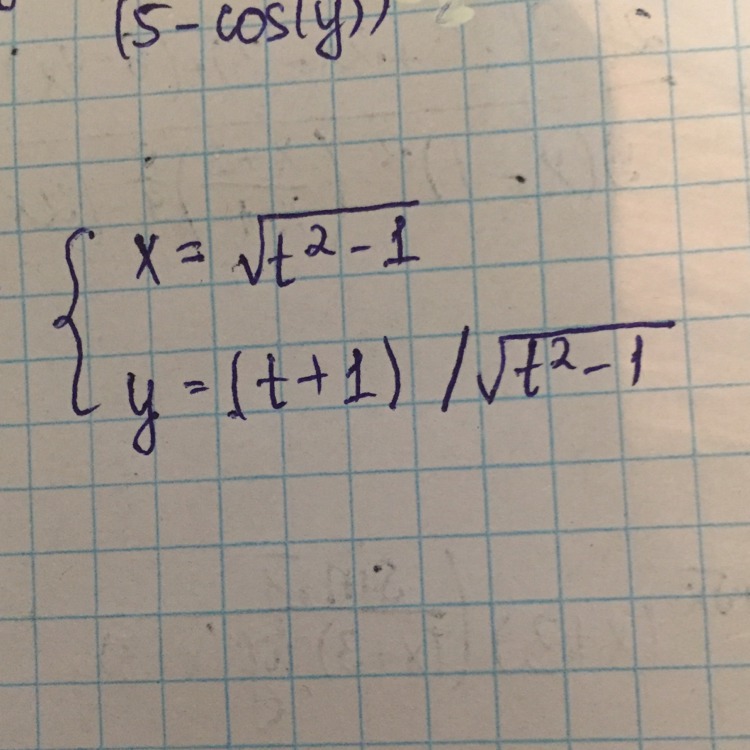 (5-cos(y))
x = √t²-1
y = (t+1) /√t²-1